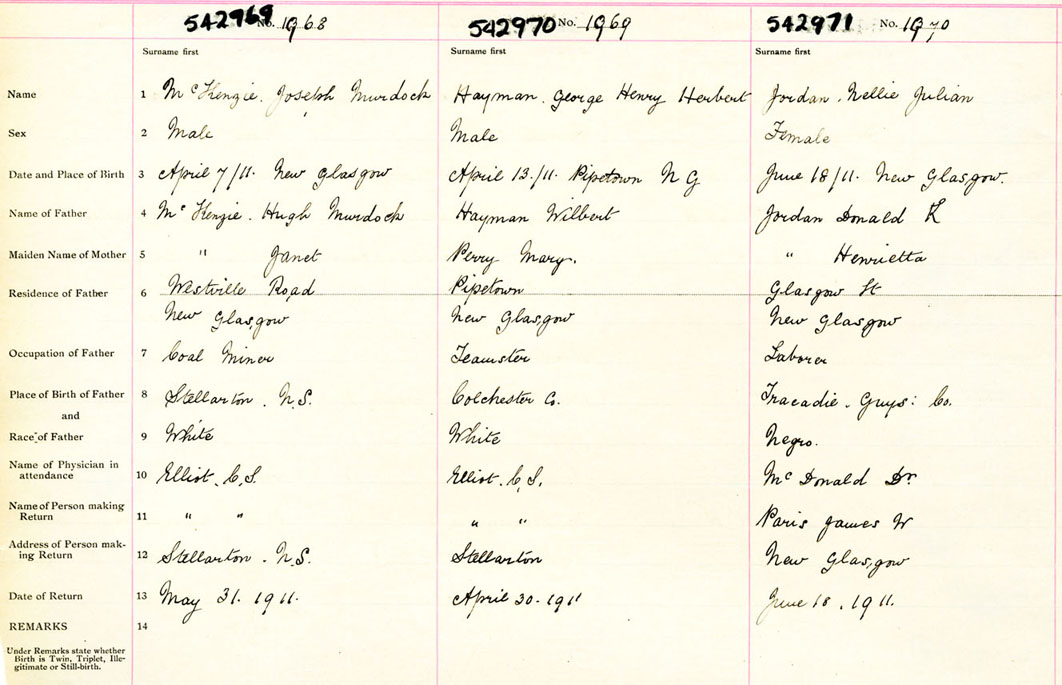 542969 No. 1968 542970 No. 1969 542971 No. 1970
Surname first Surname first Surname first
Name 1 McKenzie. Joseph Murdock Hayman. George Henry Herbert Jordan. Nellie Julian
Sex 2 Male Male Female
Date and Place of Birth 3 April 7/11. New Glasgow April 13./11. Pipetown N G June 18/11. New Glasgow.
Name of Father 4 McKenzie. Hugh Murdock Hayman Wilbert Jordan Donald K
Maiden Name of Mother 5 " Janet Perry Mary. " Henrietta
Residence of Father 6 Westville Road Pipetown Glasgow St
New Glasgow New Glasgow New Glasgow
Occupation of Father 7 Coal Miner Teamster Laborer
Place of Birth of Father 8 Stellarton. N.S. Colchester Co. Tracadie. Guys: Co.
and
Race of Father 9 White White Negro.
Name of Physician in
attendance 10 Elliot. C.S. Elliot. C.S. McDonald Dr
Name of Person making
Return 11 " " " " Paris James W
Address of Person mak-
ing Return 12 Stellarton. N.S. Stellarton New Glasgow
Date of Return 13 May 31. 1911. April 30-1911 June 18. 1911.
REMARKS 14
Under Remarks state whether
Birth is Twin, Triplet, Ille-
gitimate or Still-birth.